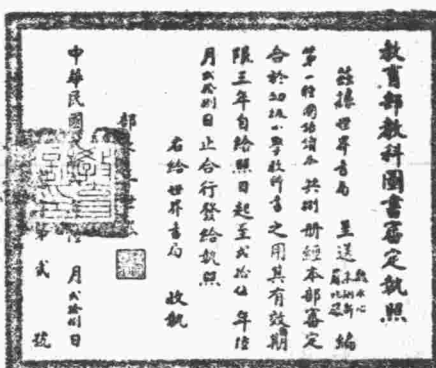 教育部教科圖書審定執照
茲據世界書局呈送 編
第一種國語讀本共捌册經本部審定
合於初級小學教科書之用其有效期
限三年自給照日起至貳拾伍年陸
月貳拾捌日止合行發給執照
右給世界書局收執
部長
中華民國 月貳拾捌日
第貳號